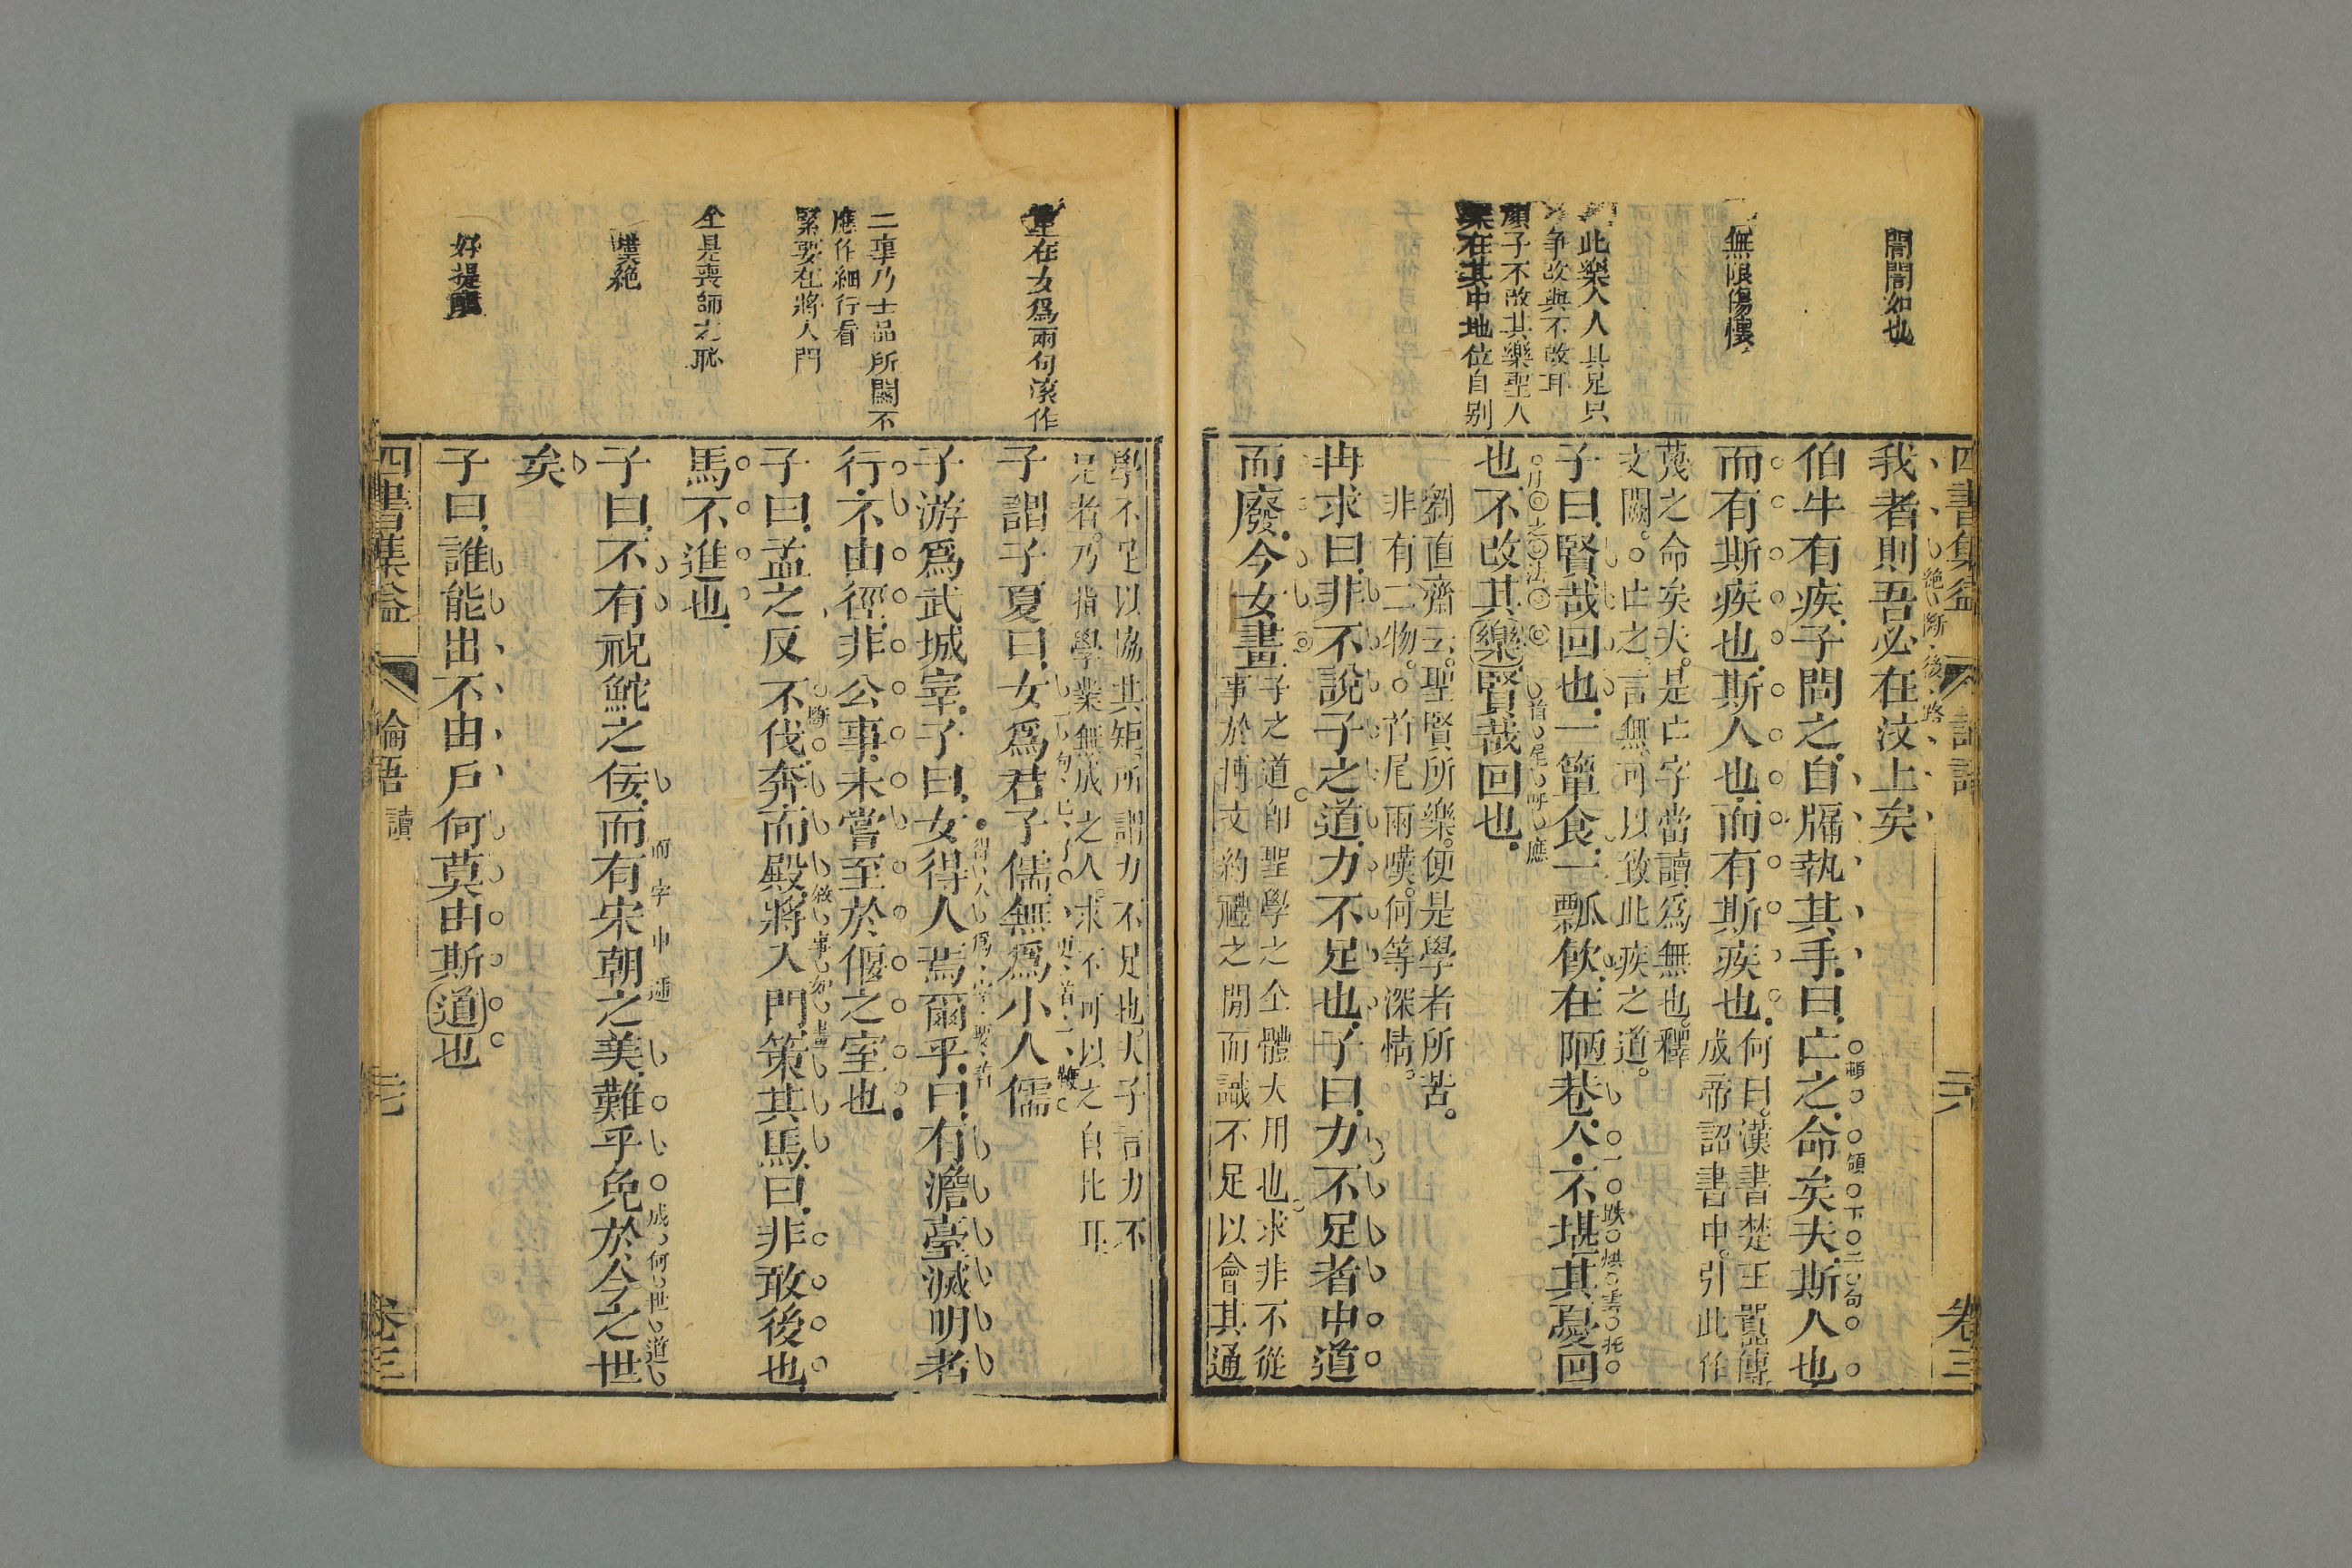 誾誾如也
無限傷懷
此樂人人具足只
爭改與不改耳
顏子不改其樂聖人
樂在其中地位自別
四書集益
卷三
我者則吾必在汶上矣
絕斷後路
伯牛有疾子問之自牖執其手曰亡之命矣夫斯人也
頓 領下二句
而有斯疾也斯人也而有斯疾也
何曰漢書楚王囂傳
成帝詔書中引此作
蔑之命矣夫是亡字當讀爲無也釋
文闕○亡之言無可以致此疾之道
子曰賢哉回也一簞食一瓢飲在陋巷人不堪其憂回
一跌烘雲托
也不改其樂賢哉回也
月之法 首尾呼應
劉直齋云聖賢所樂便是學者所苦
非有二物○首尾兩嘆何等深情
冉求曰非不說子之道力不足也子曰力不足者中道
而廢今女畫
子之道卽聖學之全體大用也求非不從
事於博文約禮之閒而識不足以會其通
重在女爲兩句滚作
二事乃士品所關不
應作細行看
緊要在將入門
全是喪師之恥
嘆絕
好提醒
學不足以協其矩所謂力不足也夫子言力不
足者乃指學業無成之人求不可以之自比耳
子謂子夏曰女爲君子儒無爲小人儒
子游爲武城宰子曰女得人焉爾乎曰有澹臺滅明者
得人爲宰要著
行不由徑非公事未嘗至於偃之室也
子曰孟之反不伐奔而殿將入門策其馬曰非敢後也
斷 敘事如畫
馬不進也
子曰不有祝鮀之佞而有宋朝之美難乎免於今之世
而字串遞 成何世道
矣
子曰誰能出不由戶何莫由斯道也
四書集益
論語
讀
卷三